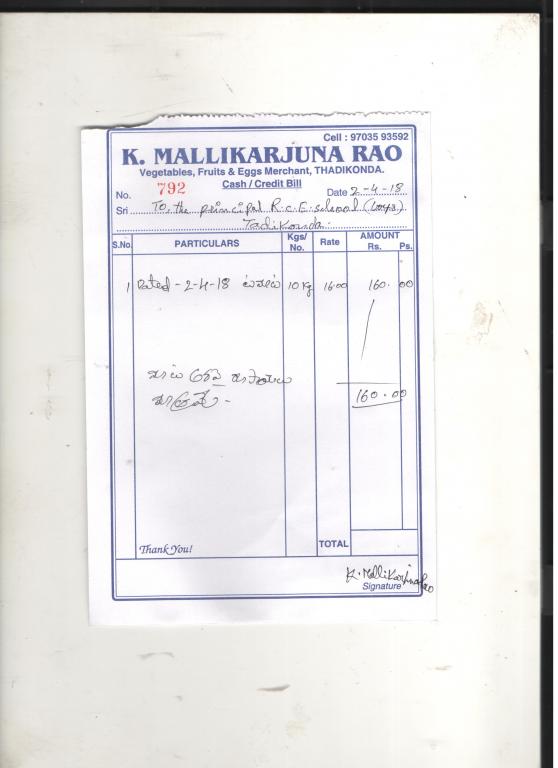 Cell : 97035 93592
K. MALLIKARJUNA RAO
Vegetables, Fruits & Eggs Merchant, THADIKONDA.
Cash / Credit Bill
No. 792 Date 2-4-18
Sri To, the principal R.C.E. school (Boys)
Tadikonda.
S.No. PARTICULARS Kgs/ No. Rate AMOUNT Rs. Ps.
1 Dated - 2-4-18 10 Kg 16.00 160. 00
160.00
Thank You! TOTAL
K. Mallikarjuna Rao
Signature